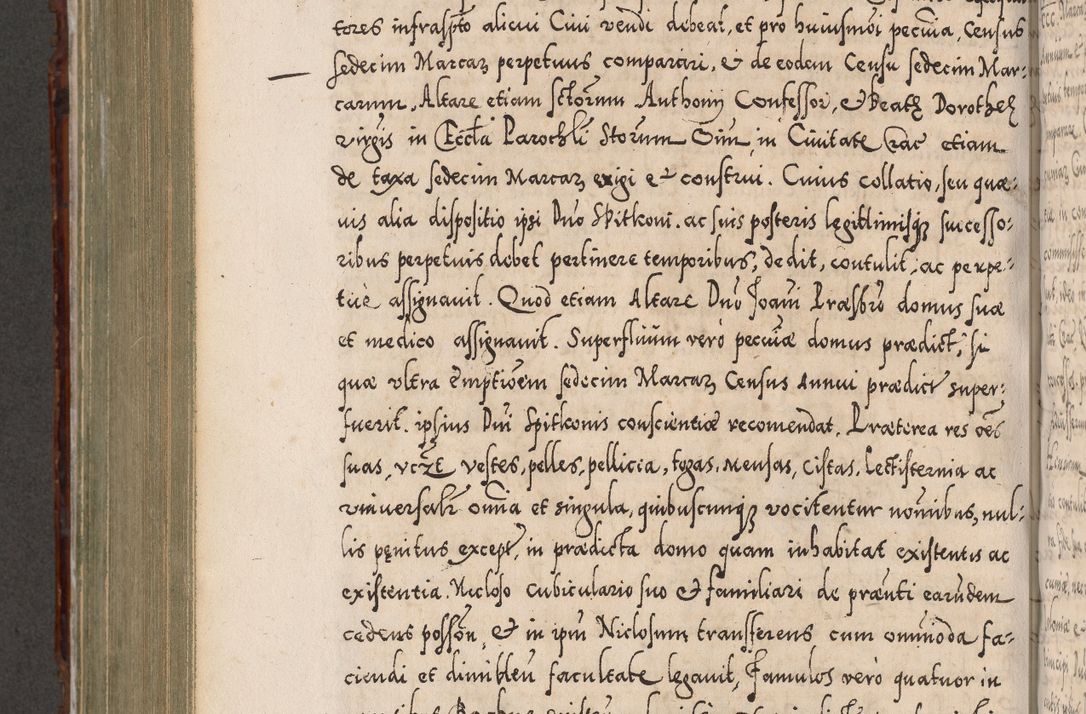 tores infrasp̃to alicui Ciui vendi debeat, et pro huiusmõi pecũia, Census
sedecim Marcaꝝ perpetuus comparari, & de eodem Censu sedecim Mar-
carum, Altare etiam sctorum Anthonij Confessor, & Beatę Dorotheę
virgis in Eccl̃a Parochli Storum Oim̃, in Ciuitate Crac etiam
de taxa sedecim Marcaꝝ exigi et construi. Cuius collatio, seu quæ-
uis alia dispositio ipsi Dño Spitkoni. ac suis posteris legittimisqꝫ successo-
ribus perpetuis debet pertinere temporibus, dedit, contulit, ac perpe-
tue assignauit. Quod etiam Altare Dño Joañi Præsbrõ domus suæ
et medico assignauit. Superfluũm verò pecũiæ domus prædict, si
quæ vltra emptiõem sedecim Marcaꝝ Census Annui prædict super-
fuerit. ipsius Dñi Spitkonis conscientiæ recomendat. Præterea res oẽs
suas, vcꝫt vestes, pelles, pellicia, togas, Mensas, Cistas, Lectisternia ac
vniuersalr omĩa et singula, quibuscunqꝫ vocitentur noĩnibus, nul-
lis pęnitus except, in prædicta domo quam inhabitat existentis ac
existentia. Nicloso cubiculario suo & familiari de præũti earũdem
cedens posson, & in ipm̃ Niclosum transferens cum omñioda fa-
ciendi et dimibleñ facultate legauit, Famulos verò quatuor in